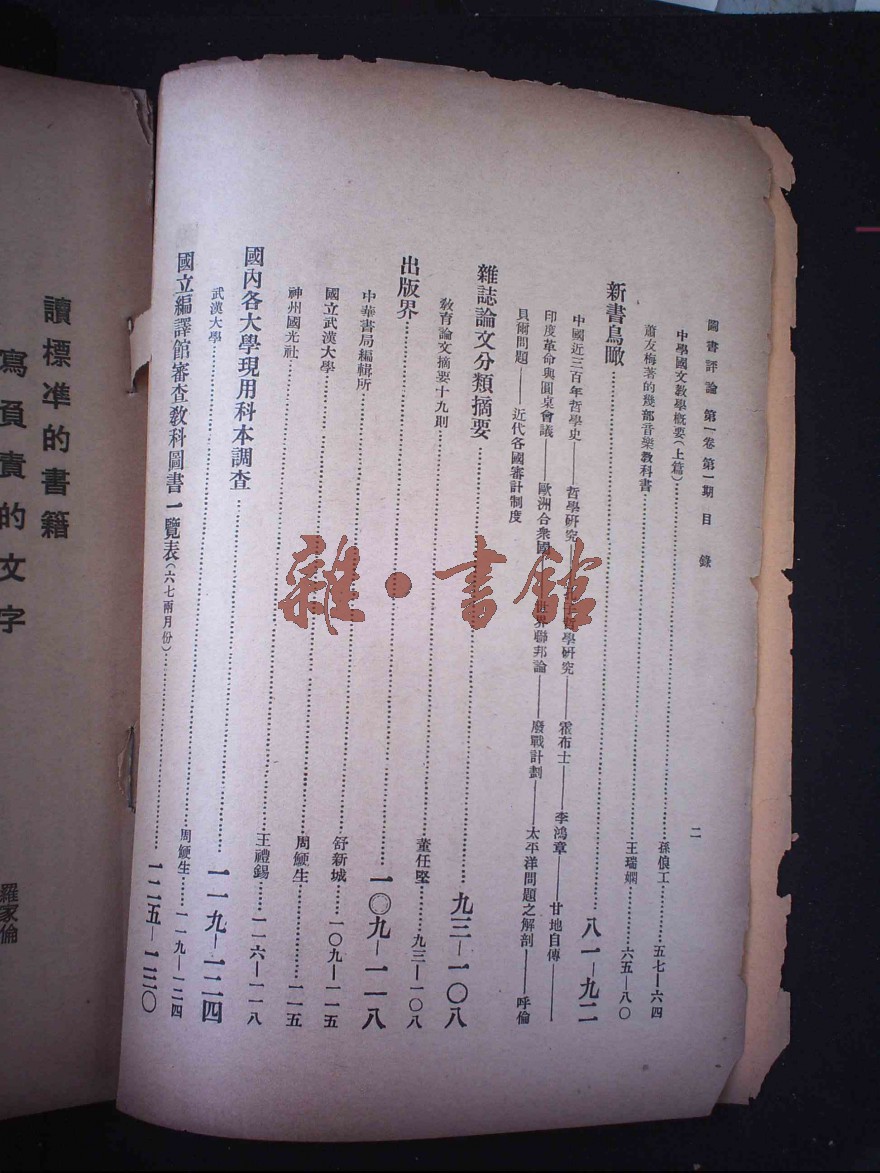 圖書評論 第一卷 第一期 目錄
二
中學國文教學概要(上篇)……孫俍工……五七—六四
蕭友梅著的幾部音樂教科書……王瑞嫻……六五—八〇
新書鳥瞰……八一—九二
中國近三百年哲學史——哲學研究——哲學研究——霍布士——李鴻章——甘地自傳——
印度革命與圓桌會議——歐洲合衆國——世界聯邦論——廢戰計劃——太平洋問題之解剖——呼倫
貝爾問題——近代各國審計制度
雜誌論文分類摘要……九三—一〇八
敎育論文摘要十九則……董任堅……九三—一〇八
出版界……一〇九—一一八
中華書局編輯所……舒新城……一〇九—一一五
國立武漢大學……周鯁生……一一五
神州國光社……王禮錫……一一六—一一八
國內各大學現用科本調查……一一九—一二四
武漢大學……周鯁生……一一九—一二四
國立編譯館審查敎科圖書一覽表(六七兩月份)……一二五—一三〇
讀標准的書籍
寫負責的文字
羅家倫
雜·書館